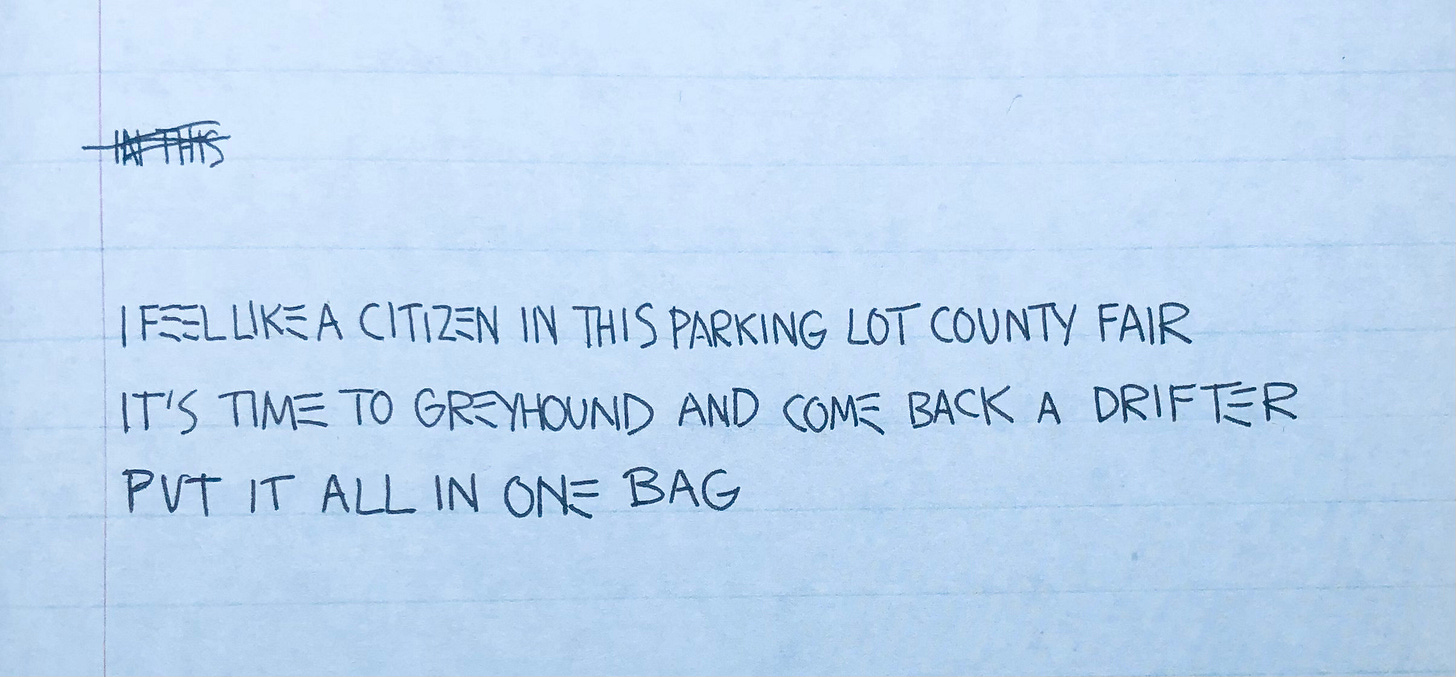 IN THIS
I FEEL LIKE A CITIZEN IN THIS PARKING LOT COUNTY FAIR
IT'S TIME TO GREYHOUND AND COME BACK A DRIFTER
PUT IT ALL IN ONE BAG